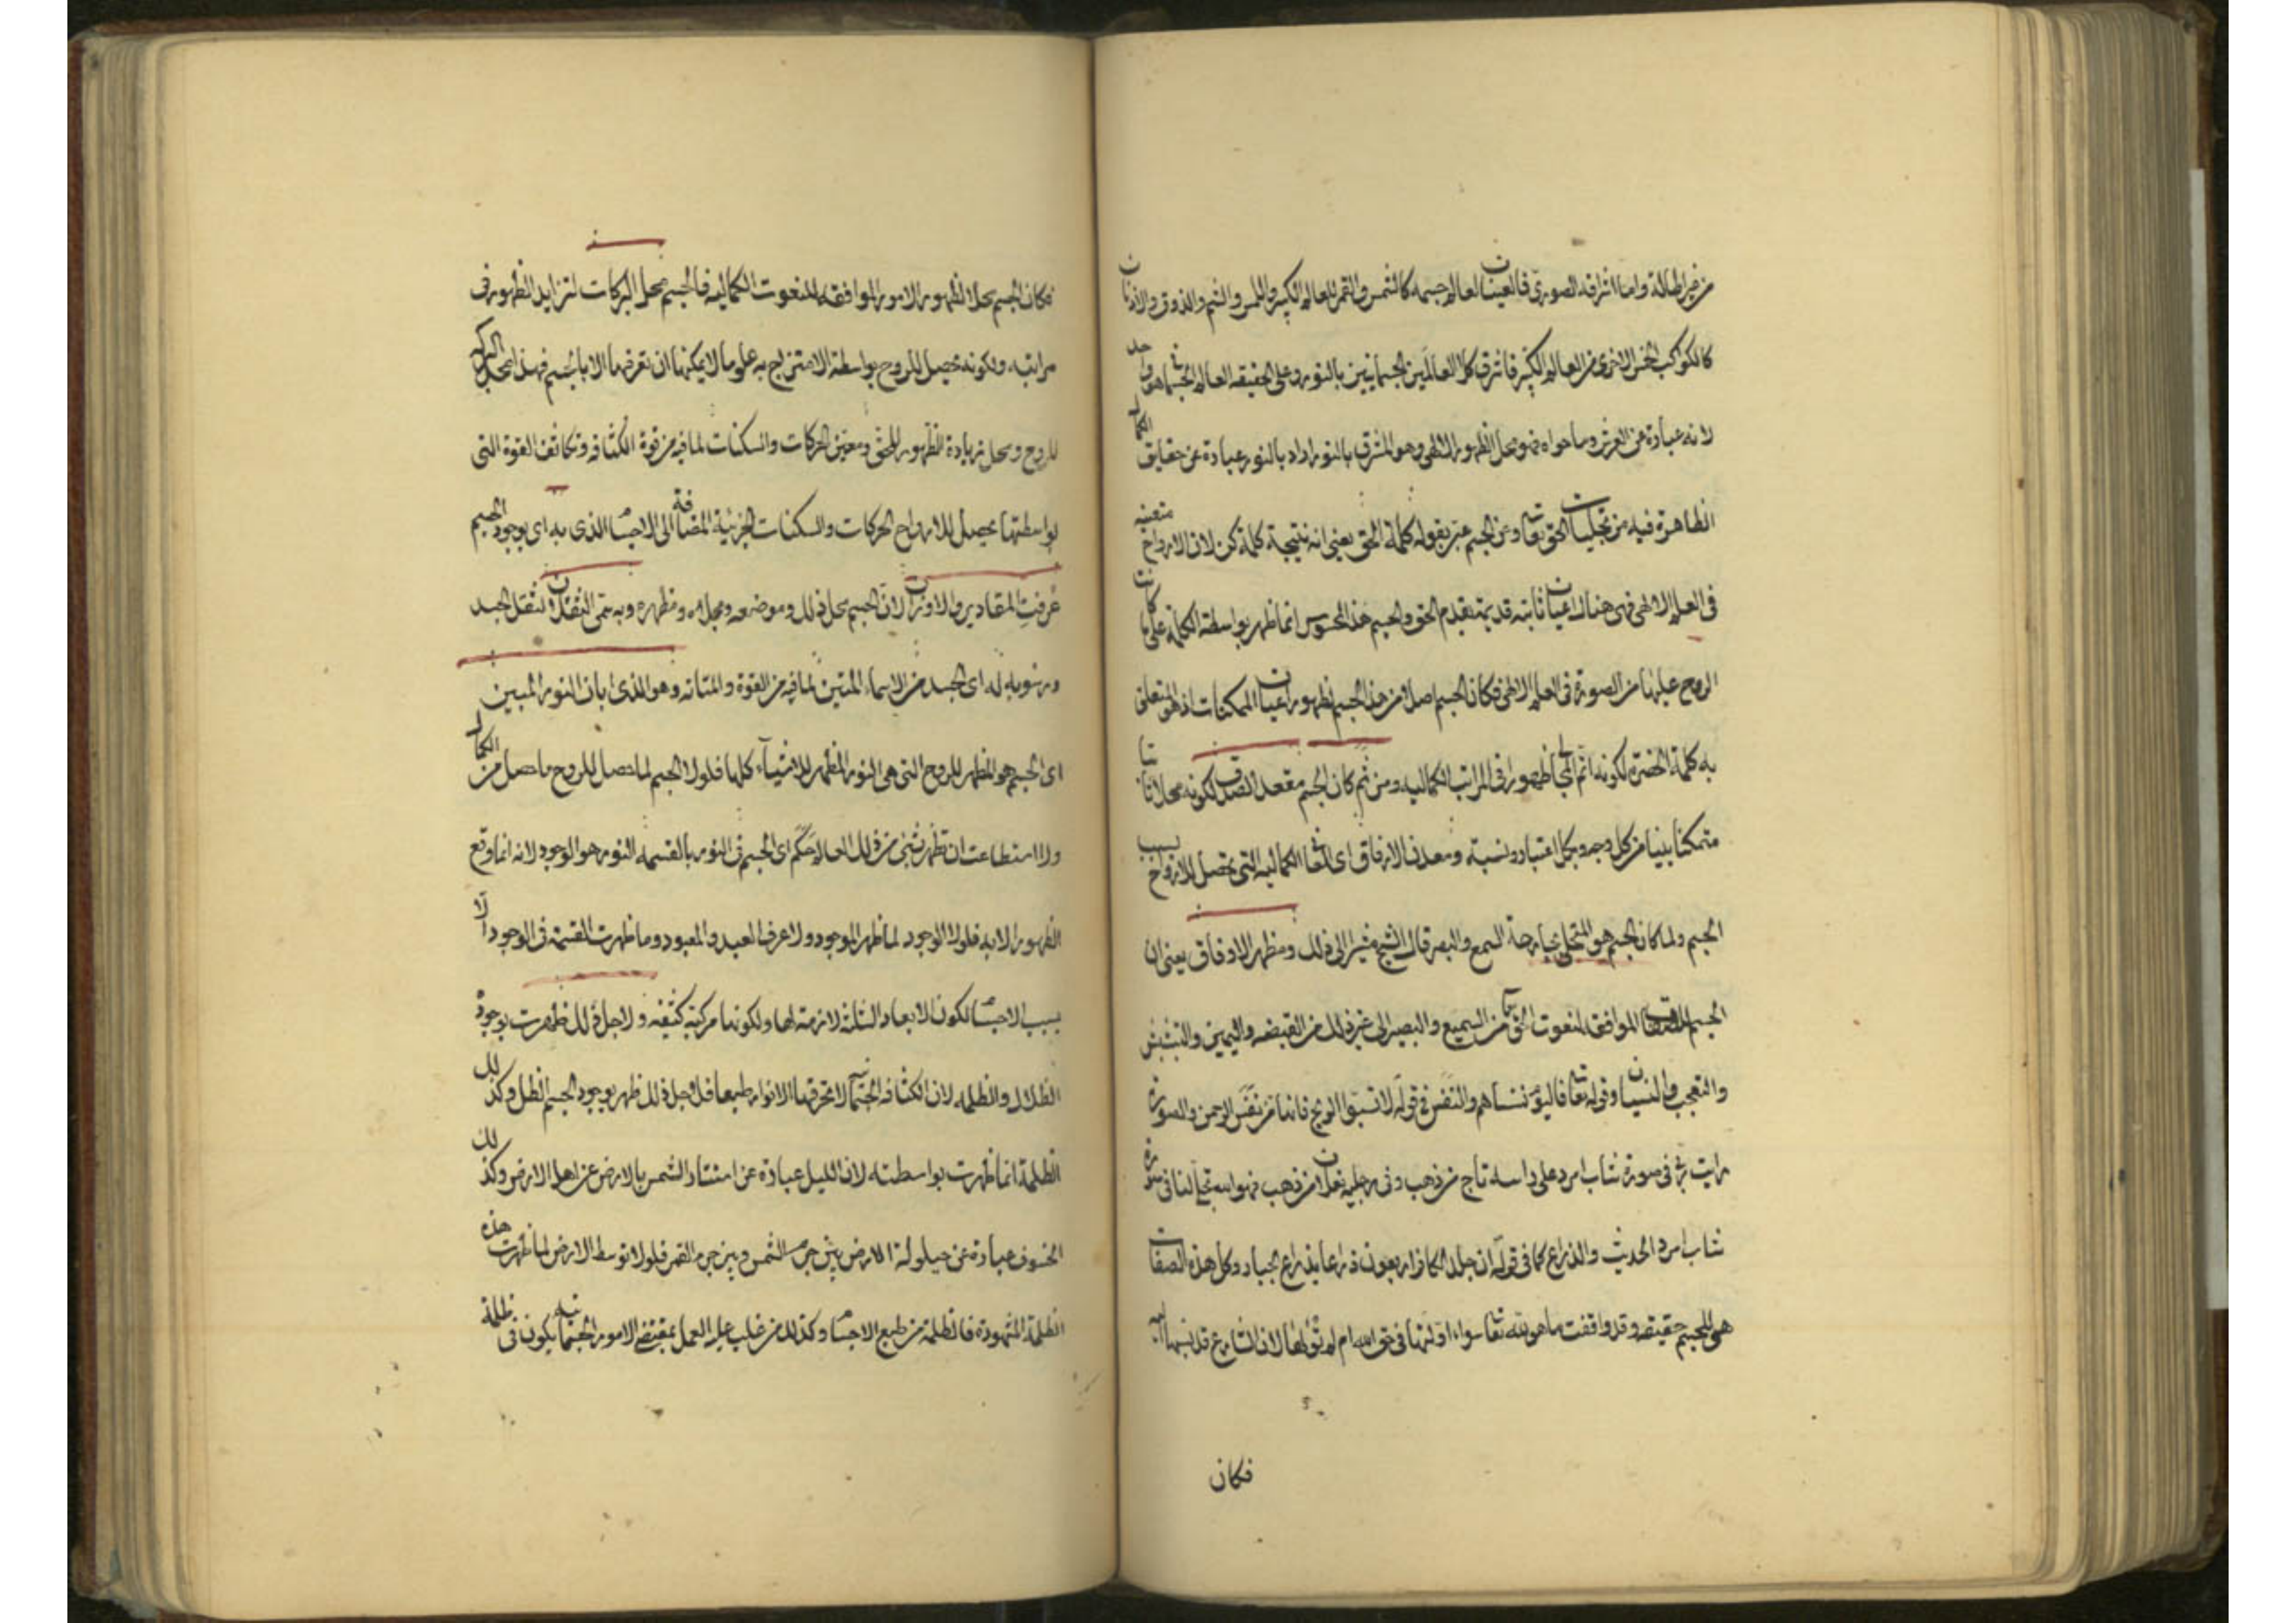 واما اشراقه الصورى فالعينان لعالم جسمه كالشمس والقمر للعالم الكبير واللمس والشم والذوق والاذنان
كالكواكب الخمس الاخرى من العالم الكبير فاشرق كلا العالمين الجسمانيين بالنور وعلى الحقيقه العالم الجسمانى هو واحد
لانه عبارة عن العرش وما حواه فهو محل الظهور الالهى وهو المشرق بالنور اراد بالنور عبارة عن حقايق الكمال
الظاهرة فيه من تجليات الحق تعا وعن الجسم عبر بقوله كلمة الحق يعنى انه نتيجة كلمة كن لان الارواح متعينه
فى العلم الالهى فهى هناك اعيان ثابته قديمة بقدم الحق والجسم هذا المحسوس انما ظهر بواسطة الكلمة على ما كانت
الروح عليها من الصورة فى العلم الالهى فكان الجسم اصلا من هذا الجسم لظهور اعيان الممكنات اذ هو المتعلق
به كلمة الحضرة لكونه اتم المجالى ظهورا فى المراتب الكماليه ومن ثم كان الجسم مقعد الصدق لكونه محلا ثابتا
متمكنا بنيا من كل وجه وبكل اعتبار ونسبة ومعدن الارفاق اى الكماليه التى تحصل للارواح بسبب
الجسم ولما كان الجسم هو المتجلى بجارحة السمع والبصر قال الشيخ مشيرا الى ذلك ومظهر الاوفاق يعنى ان
الجسم الموافق لنعوت الحق تعا من السميع والبصير الى غير ذلك من القبضه واليمين والتبشبش
والتعجب والنسيان وقوله تعا فاليوم ننساهم والنفس فى قوله لا تسبوا الريح فانها من نفس الرحمن والصورة
رايت ربى فى صورة شاب امرد على راسه تاج من ذهب وفى رجليه نعلان من ذهب فهو الله تجلى لنا فى صورة
شاب امرد الحديث والذراع كما فى قوله ان جلد الكافر اربعون ذراعا بذراع الجبار وكل هذه الصفات
هى للجسم حقيقه وقد وافقت ما هو لله تعا سواء اولتها فى حق الله ام لم تؤولها لان الشارع قد نسبها اليه
فكان
فكان الجسم محل الظهور الامور الموافقه للنعوت الكماليه فالجسم محل البركات لتزايد الظهور فى
مراتبه ولكونه تحصيل للروح بواسطة الامتزاج به علوما لا يمكنها ان تعرفها الا بالجسم فهذا محل البركه
للروح ومحل زيادة الظهور للحق ومعين الحركات والسكنات لما فيه من قوة الكثافه وتكاثف القوة التى
بواسطتها يحصل للارواح الحركات والسكنات الجزئية المضافة الى الاجسام الذى به اى بوجود الجسم
عرفت المقادير والاوزان لان الجسم محل ذلك وموضعه ومجلاه ومظهره وبه سمى الثقلان لثقل الجسد
ورسوبه له اى الجسد من الاسماء المتين لما فيه من القوة والمتانه وهو الذى ابان النور المبين
اى الجسم هو المظهر للروح التى هى النور المظهر للاشياء كلها فلولا الجسم لما حصل للروح ما حصل من الكمال
ولا استطاعت ان تظهر بشئ من ذلك العلا حكم اى الجسم فى النور بالقسمه النور هو الوجود لانه انما وقع
الظهور الا به فلولا الوجود لما ظهر الموجود ولا عرف العبد والمعبود وما ظهرت القسمة فى الوجود الا
بسبب الاجسام لكون الابعاد الثلثة لازمة لها ولكونها مركبة كثيفه ولاجل ذلك ظهرت بوجوده
الظلال والظلمه لان الكثافه الجسمانيه لا تخرقها الانوار طبعا فلاجل ذلك ظهر بوجود الجسم الظل وكذلك
الظلمة انما ظهرت بواسطته لان الليل عبارة عن استتار الشمس بالارض عن اهل الارض وكذلك
الخسوف عبارة عن حيلولة الارض بين جرم الشمس وبين جرم القمر فلولا توسط الارض لما ظهرت هذه
الظلمة المشهودة فالظلمة من طبع الاجسام وكذلك من غلب عليه العمل بمقتضى الامور الجسمانيه يكون فى ظلمة